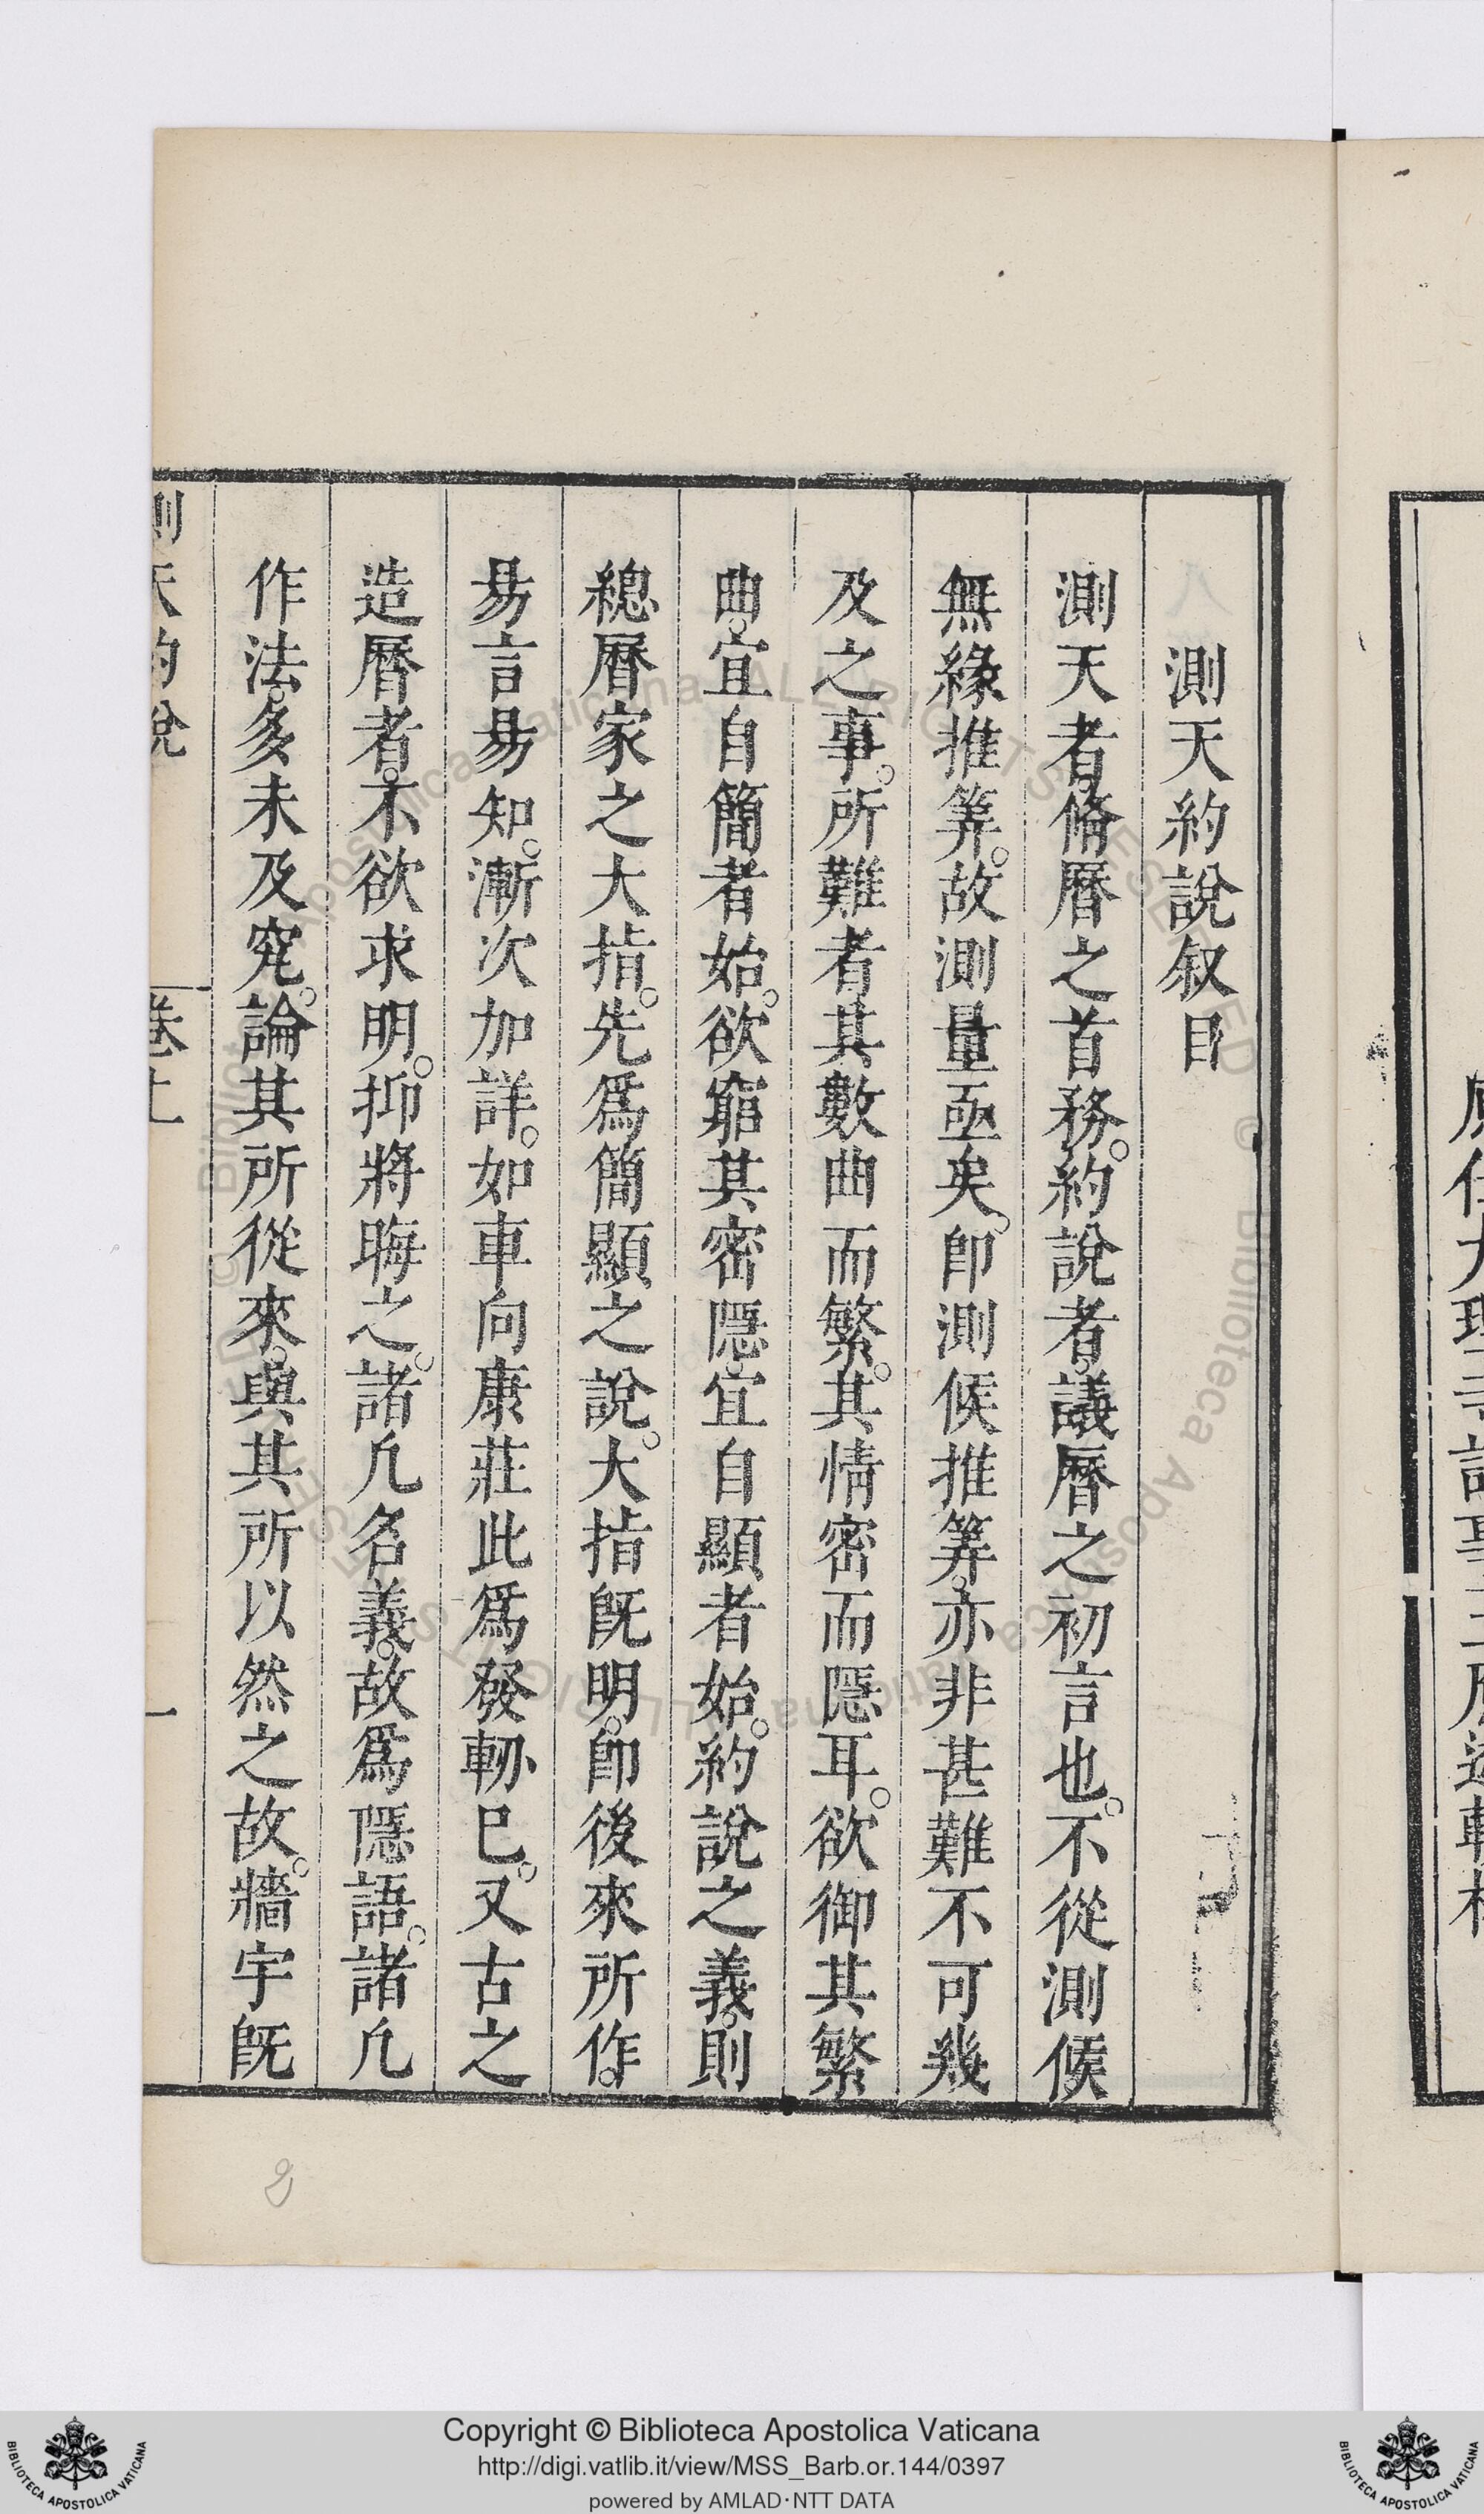 測天約說叙目
測天者。脩曆之首務。約說者。議曆之初言也。不從測候。
無緣推筭。故測量亟矣。卽測候推筭。亦非甚難不可幾
及之事。所難者其數曲而繁。其情密而隱耳。欲御其繁
曲。宜自簡者始。欲窮其密隱。宜自顯者始。約說之義。則
總曆家之大指。先爲簡顯之說。大指旣明。卽後來所作。
易言易知。漸次加詳。如車向康莊此爲發軔巳。又古之
造曆者。不欲求明。抑將晦之。諸凢名義。故爲隱語。諸凢
作法。多未及究。論其所從來。與其所以然之故。牆宇旣
測天約說 卷上 一
Copyright © Biblioteca Apostolica Vaticana
http://digi.vatlib.it/view/MSS_Barb.or.144/0397
powered by AMLAD·NTT DATA